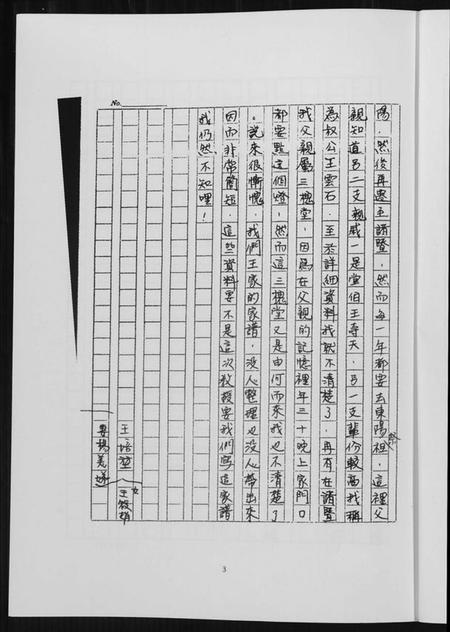 No.
陽．然後再遷至諸暨，然而每一年都要去東陽祭祖，這裡父
親知道另二支親戚一是堂伯王奇夫．另一支輩份較高我稱
為叔公王雲石．至於詳細資料我就不清楚了．再有在諸暨
我父親屬三槐堂，因為在父親的記憶裡年三十晚上家門口
都要點這個燈，然而這三槐堂又是由何而來我也不清楚了
。說來很慚愧．我們王家的家譜，没人整理也没人帶出來
因而非常簡短．這些資料要不是這次教授要我們寫這家譜
我仍然不知哩！
王培堃
妻楊美
女王筱
3